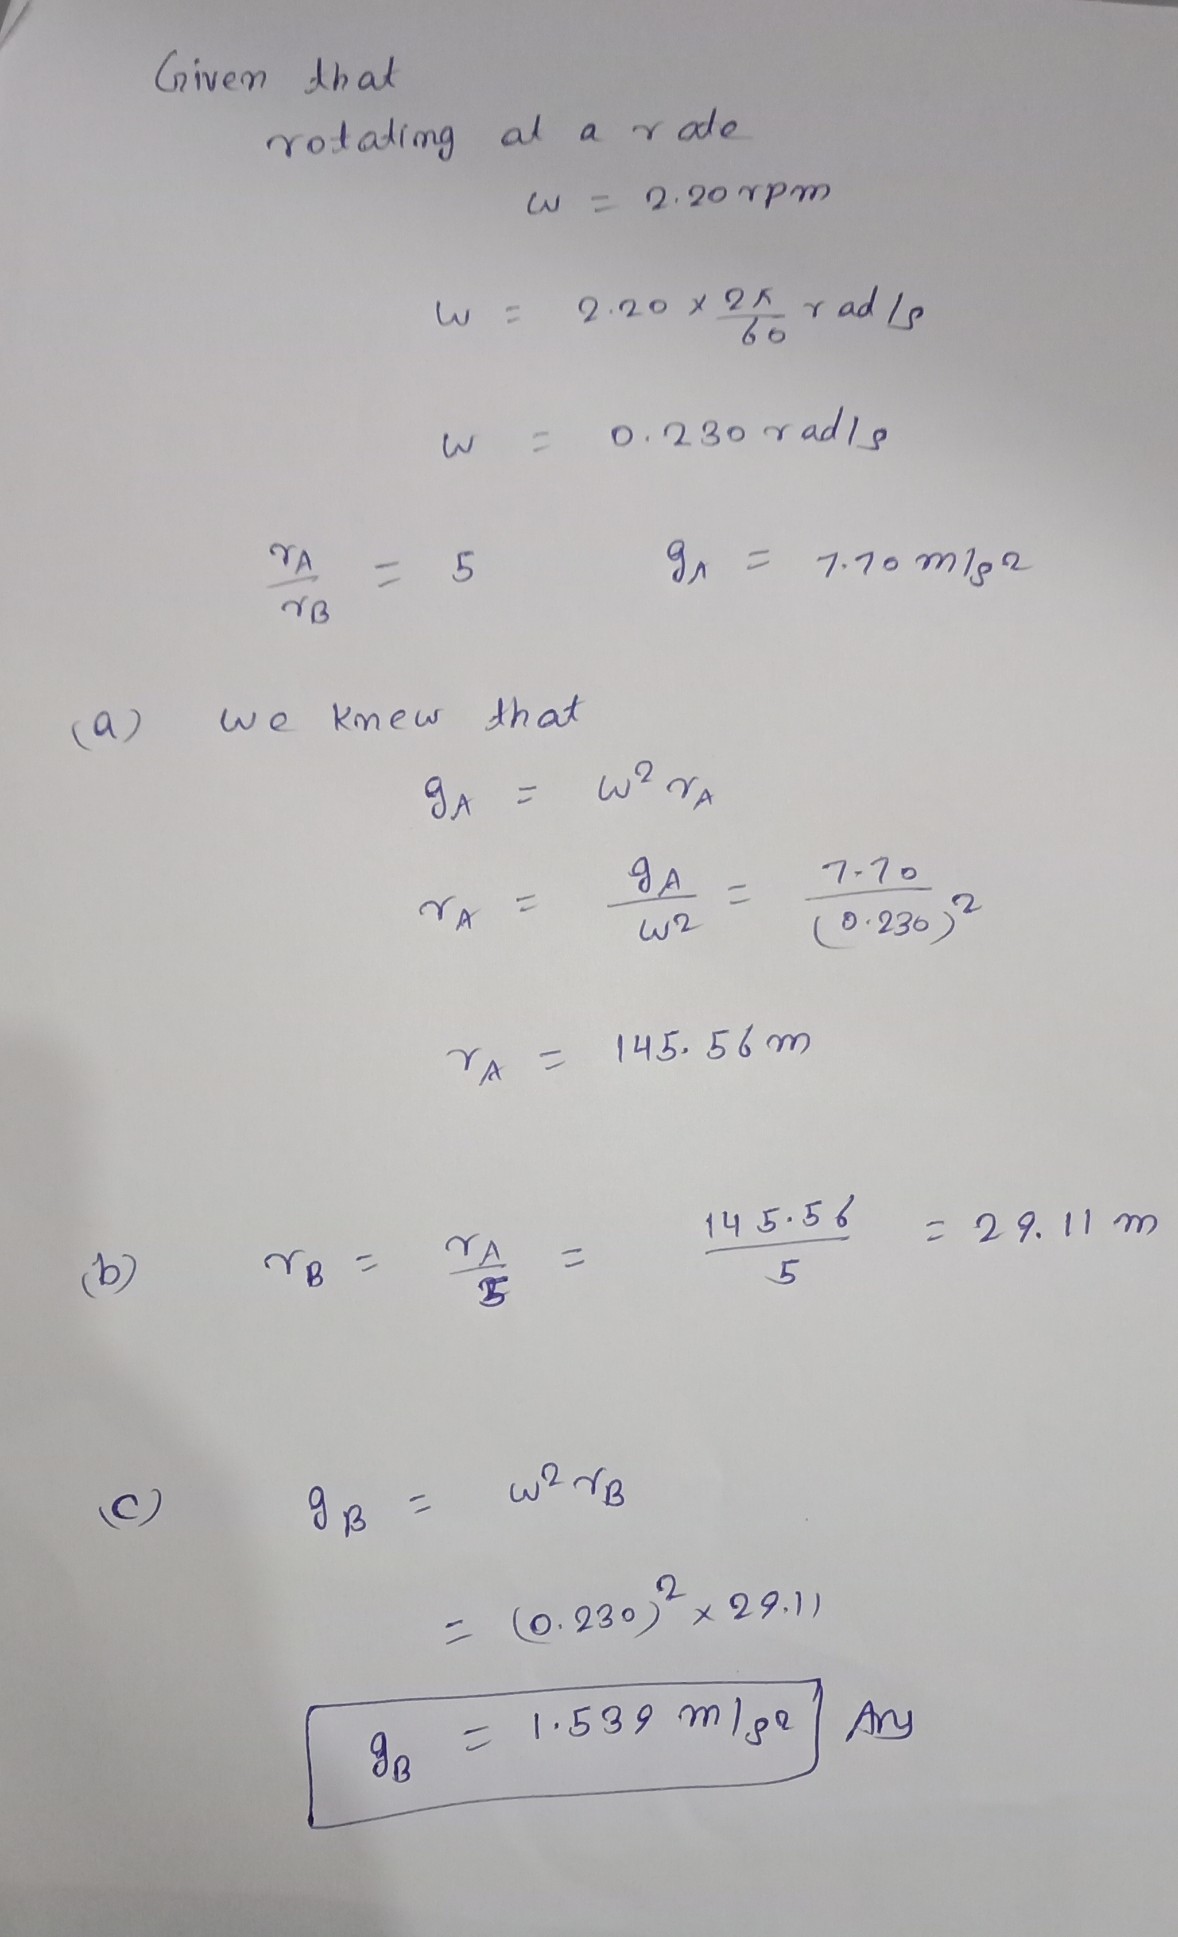 Given that
rotating at a rate
ω = 2.20 rpm
ω = 2.20 × 2π/60 rad/s
ω = 0.230 rad/s
rA/rB = 5    gA = 7.70 m/s2
(a) we knew that
gA = ω² rA
rA = gA/ω2 = 7.70/(0.230)²
rA = 145.56 m
(b) rB = rA/5 = 145.56/5 = 29.11 m
(c) gB = ω² rB
= (0.230)² × 29.11
gB = 1.539 m/s2 Ans